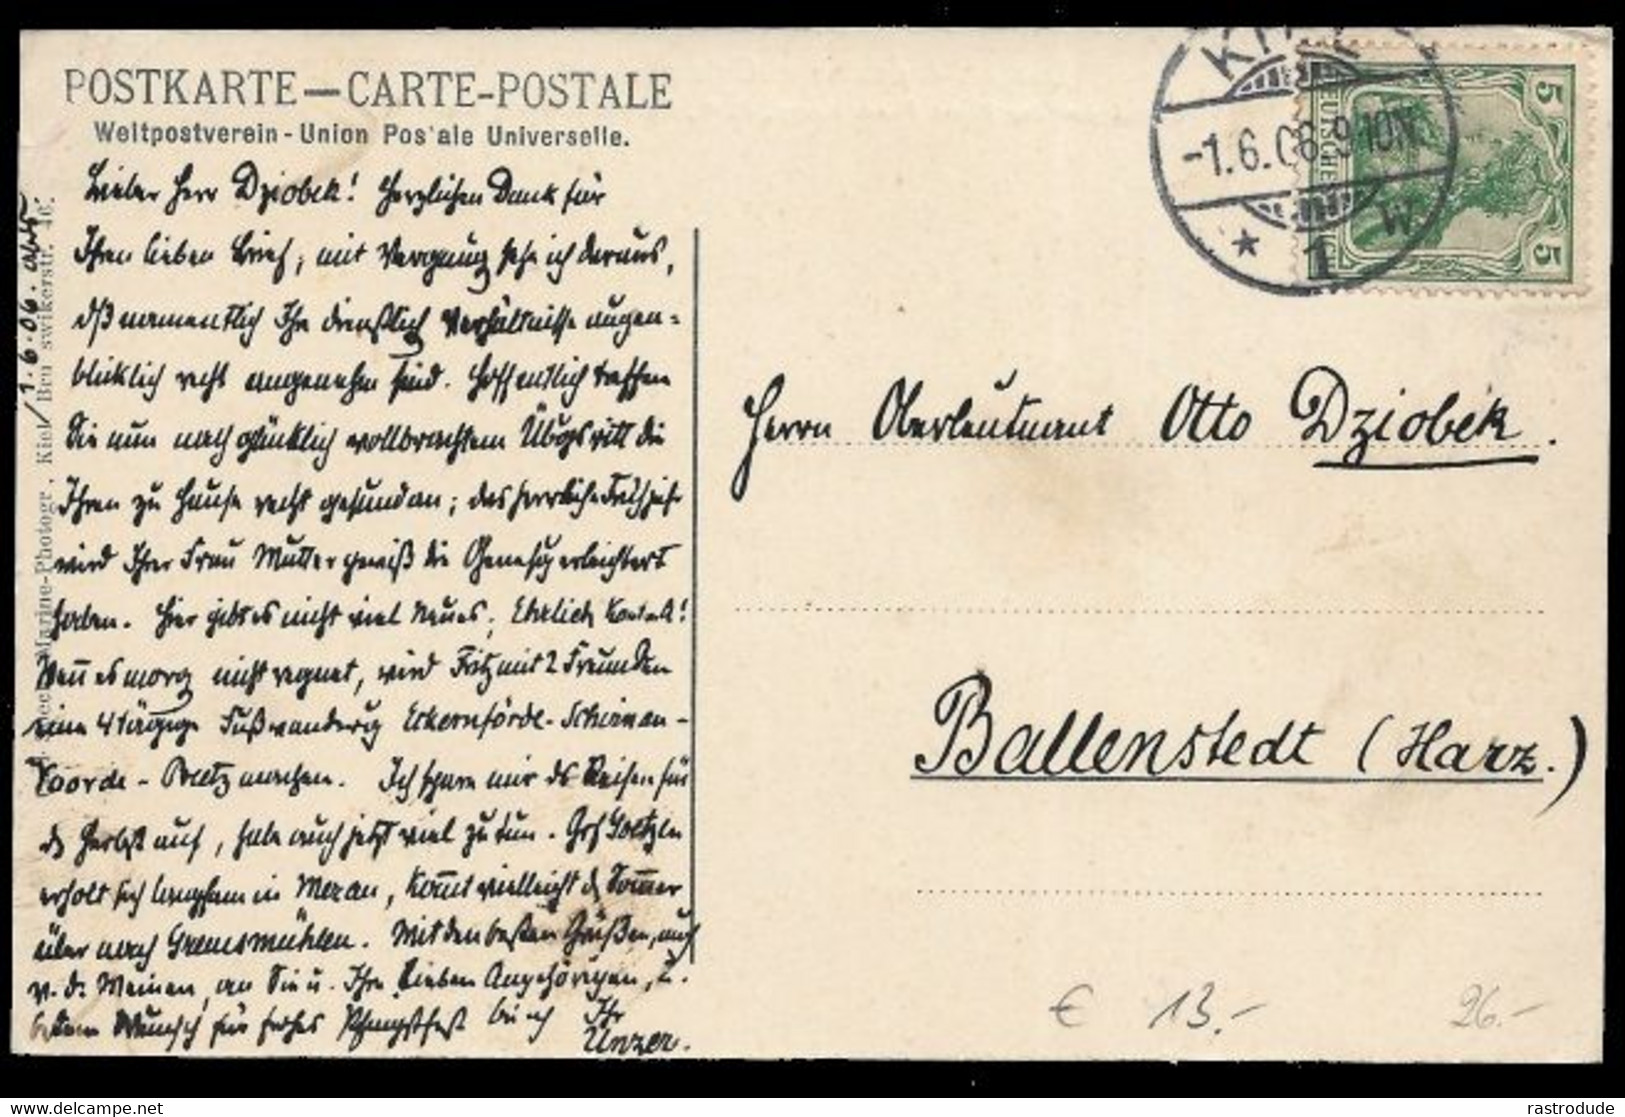 POSTKARTE—CARTE-POSTALE
Weltpostverein - Union Pos'ale Universelle.
Lieber Herr Dziobek! Herzlichen Dank für
Ihren lieben Brief, mit Vergnüg sehe ich daraus,
dß namentlich Ihr dienstlich Verhältnisse augen=
blicklich recht angenehm sind. Hoffentlich treffen
Sie nun nach glücklich vollbrachtem Übgsritt die
Ihren zu Hause recht gesund an; das herrliche Frühjahr
wird Ihrer Frau Mutter gewiß die Genesg erleichtert
haben. Hier gibt es nicht viel Neues.
Wenn es morg nicht regnet, wird Fritz mit 2 Freunden
eine 4 tägige Fußwanderg Eckernförde-
Noorde - Preetz machen. Ich spare mir ds Reisen für
ds Herbst auf, habe auch jetzt viel zu tun.
erholt sich langsam in Meran, kom̄t vielleicht ds Som̄er
über nach Gremsmühlen. Mit den besten Grüßen, auch
v. d. Meinen, an Sie u. Ihre lieben Angehörigen, u.
bestem Wunsch für frohes Pfingstfest bin ich Ihr
Unzer.
1.6.06.
Marine-Photogr., Kiel
KIEL
-1.6.06.9-10N.
* 1 W.
DEUTSCHE
5
5
Herrn Oberleutnant Otto Dziobek.
Ballenstedt (Harz.)
€ 13.-
26.-
delcampe.net
rastrodude